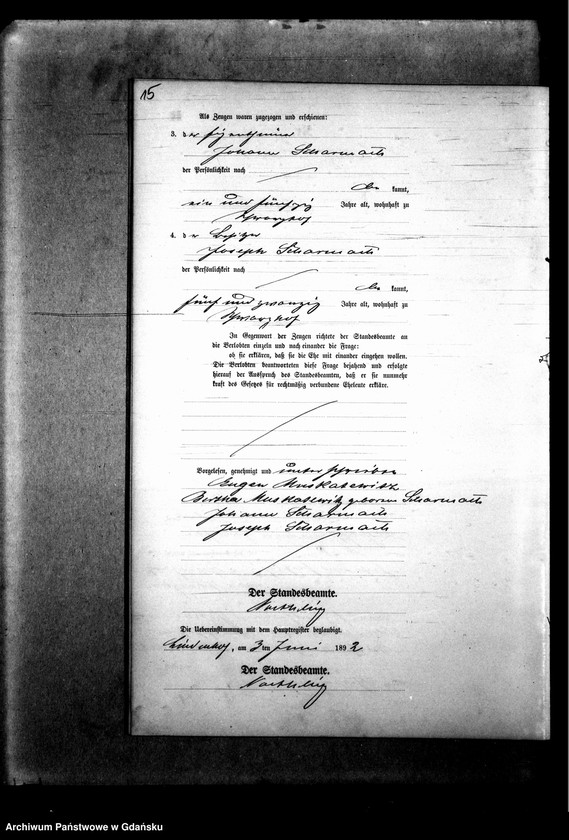 15
Als Zeugen waren zugezogen und erschienen:
3. der Eigenthümer
Johann Scharmach
der Persönlichkeit nach
be kannt,
ein und fünfzig Jahre alt, wohnhaft zu
Schwarzhof
4. der Besitzer
Joseph Scharmach
der Persönlichkeit nach
be kannt,
fünf und zwanzig Jahre alt, wohnhaft zu
Schwarzhof
In Gegenwart der Zeugen richtete der Standesbeamte an
die Verlobten einzeln und nach einander die Frage:
ob sie erklären, daß sie die Ehe mit einander eingehen wollen.
Die Verlobten beantworteten diese Frage bejahend und erfolgte
hierauf der Ausspruch des Standesbeamten, daß er sie nunmehr
kraft des Gesetzes für rechtmäßig verbundene Eheleute erkläre.
Vorgelesen, genehmigt und unterschrieben
Eugen Muskatewitz
Bertha Muskatewitz geborene Scharmach
Johann Scharmach
Joseph Scharmach
Der Standesbeamte.
Die Uebereinstimmung mit dem Hauptregister beglaubigt.
Lindenhof, am 3 ten Juni 1892
Der Standesbeamte.
Archiwum Państwowe w Gdańsku